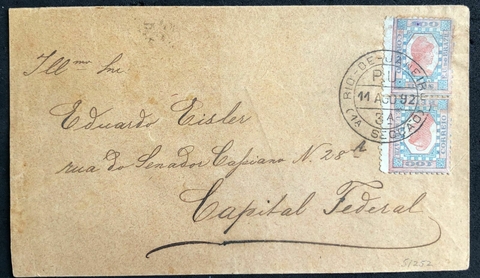 Ill.mo Snr
Eduardo Eisler
rua do Senador Cassiano N. 28 A
Capital Federal
RIO-DE-JANEIRO
P.U
11 AGO 92
3A
(1A SECÇÃO)
CORREIO
100
100
51252